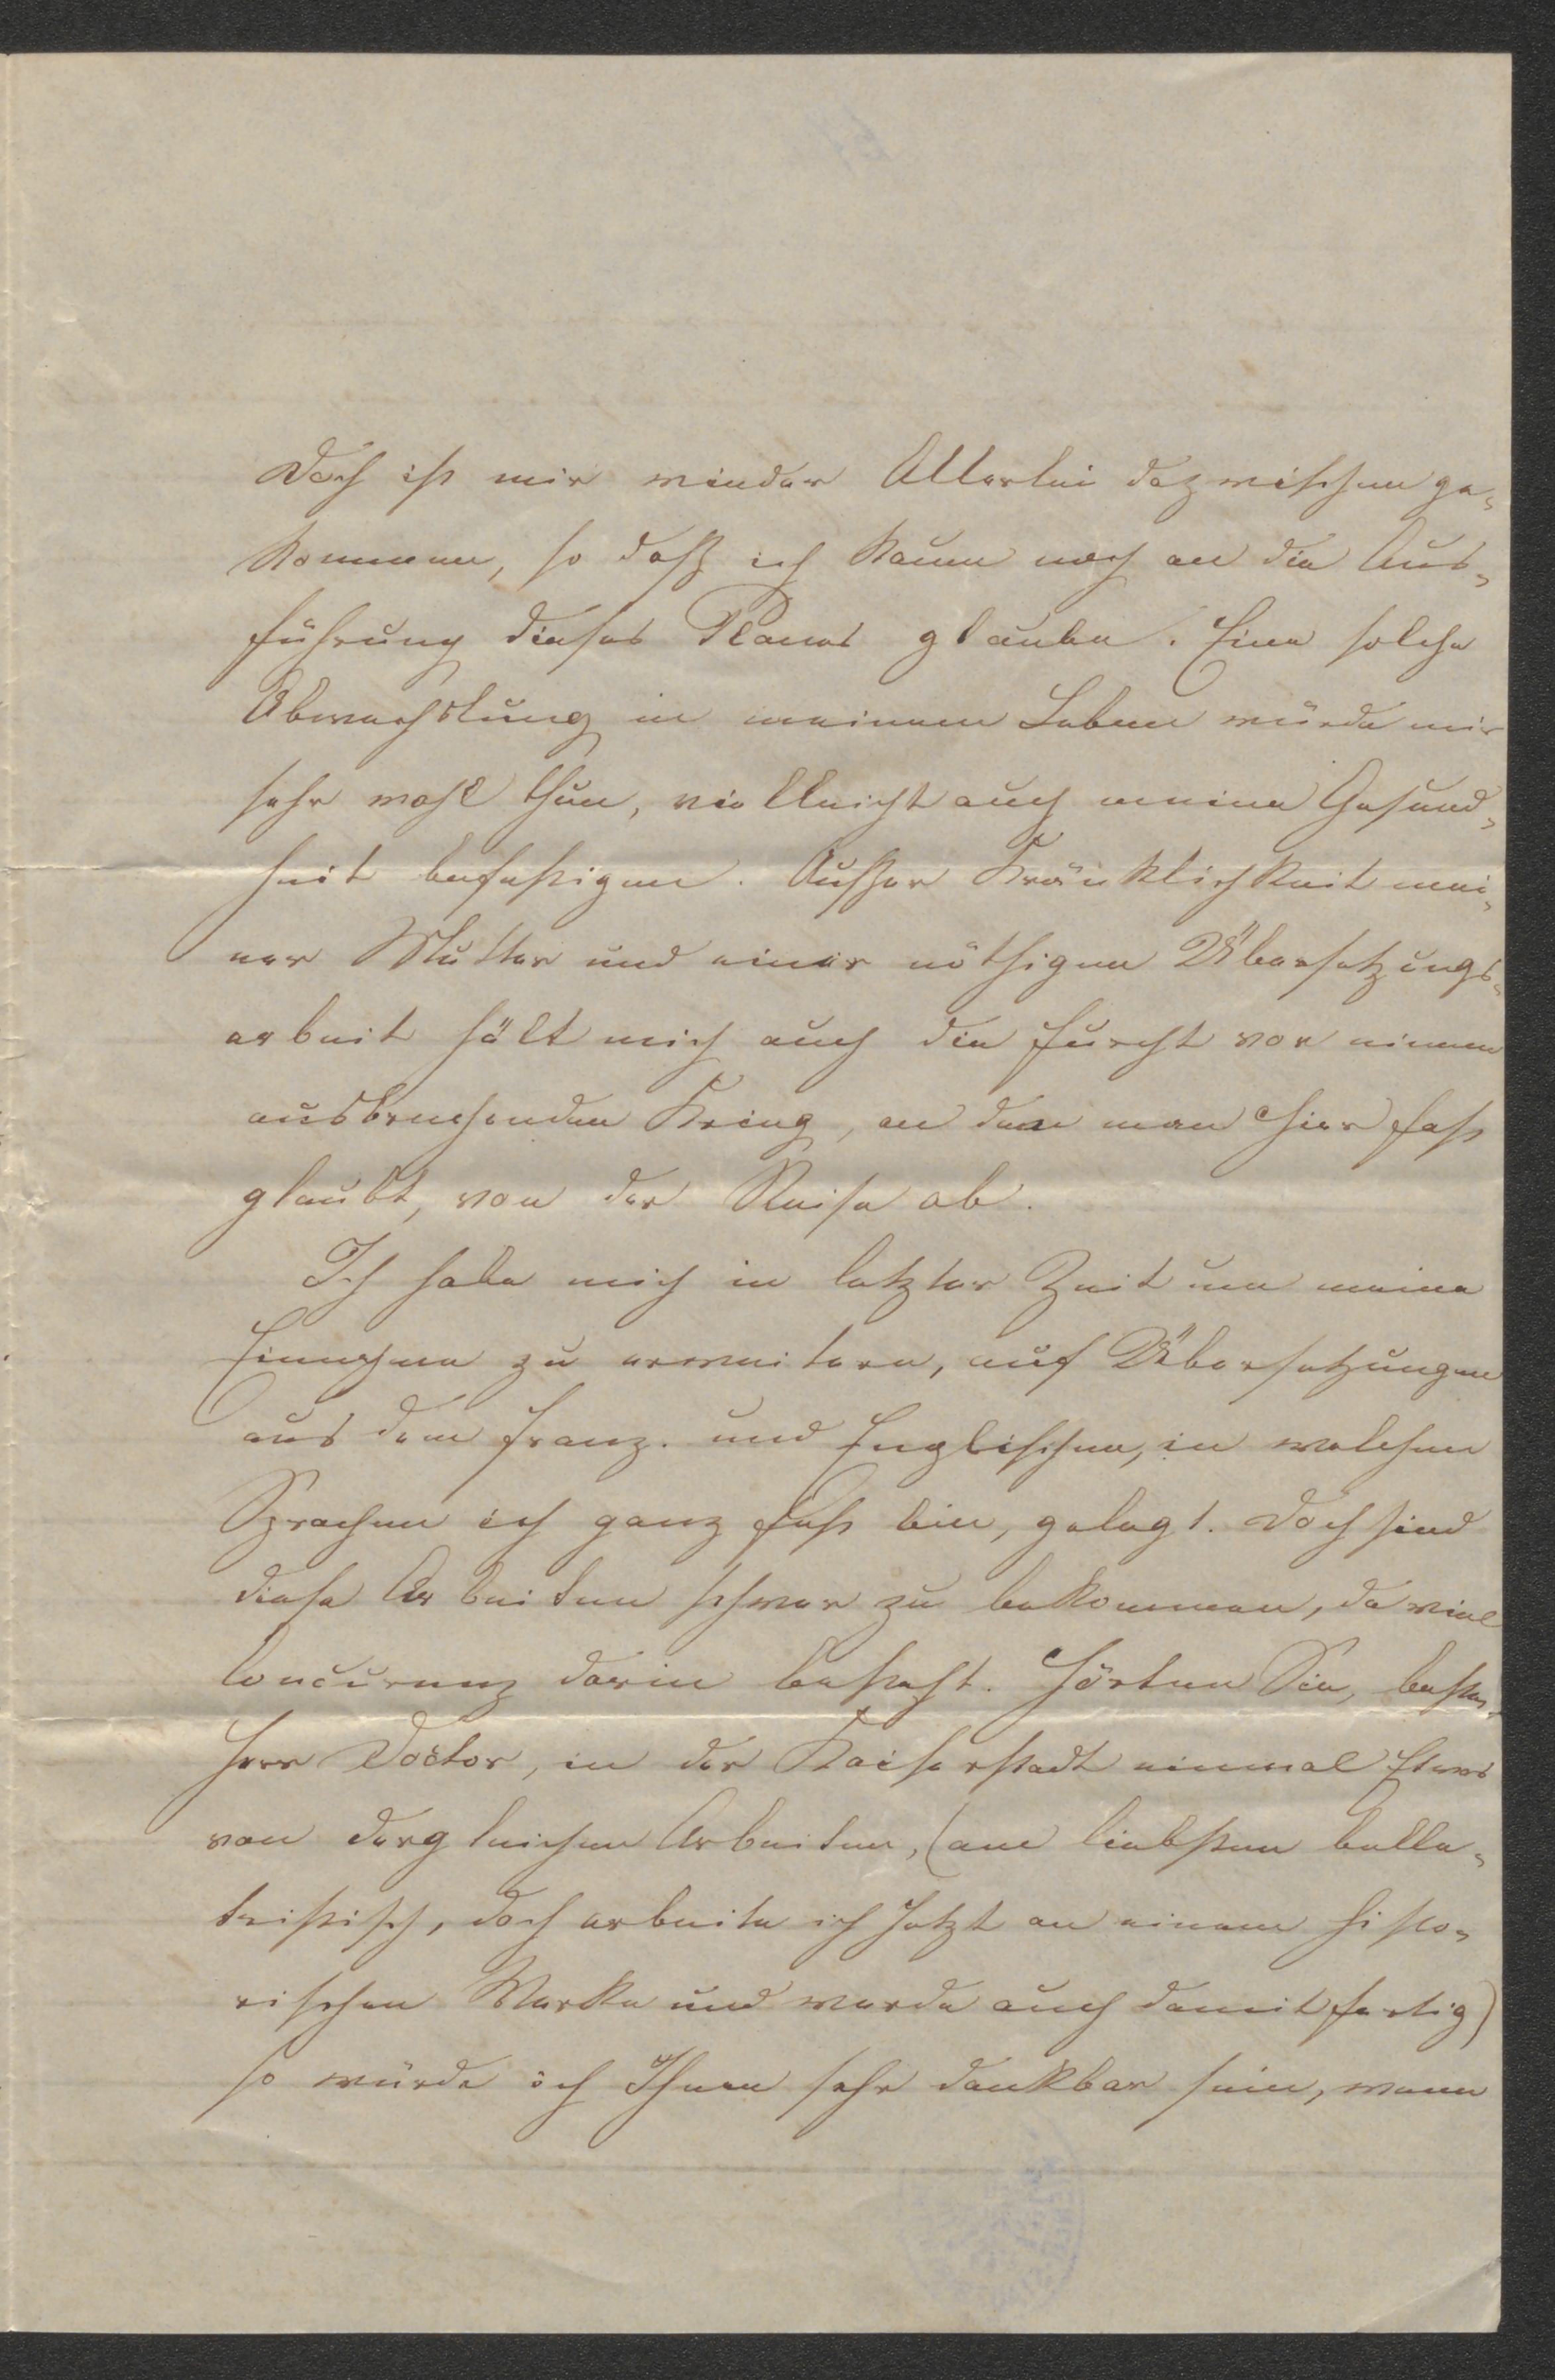 Doch ist mir wieder Allerlei dazwischen ge-
kommen, so daß ich kaum noch an die Aus-
führung dieses Planes glaube. Eine solche
Abwechslung in meinem Leben würde mir
sehr wohl thun, vielleicht auch meine Gesund-
heit befestigen. Außer Kränklichkeit mei-
ner Mutter und einer nöthigen Übersetzungs-
arbeit hält mich auch die Furcht vor einem
ausbrechenden Krieg, an den man hier fest
glaubt, von der Reise ab.
Ich habe mich in letzter Zeit um meine
Einnahmen zu erweitern, auf Übersetzungen
aus dem Franz. und Englischen, in welchen
Sprachen ich ganz fest bin, gelegt. Doch sind
diese Arbeiten schwer zu bekommen, da viel
Concurenz darin besteht. Hörten Sie, bester
Herr Doctor, in der Kaiserstadt einmal Etwas
von dergleichen Arbeiten, (am liebsten belle-
tristisch, doch arbeite ich jetzt an einem histo-
rischen Werke und werde auch damit fertig)
so würde ich Ihnen sehr dankbar sein, wenn